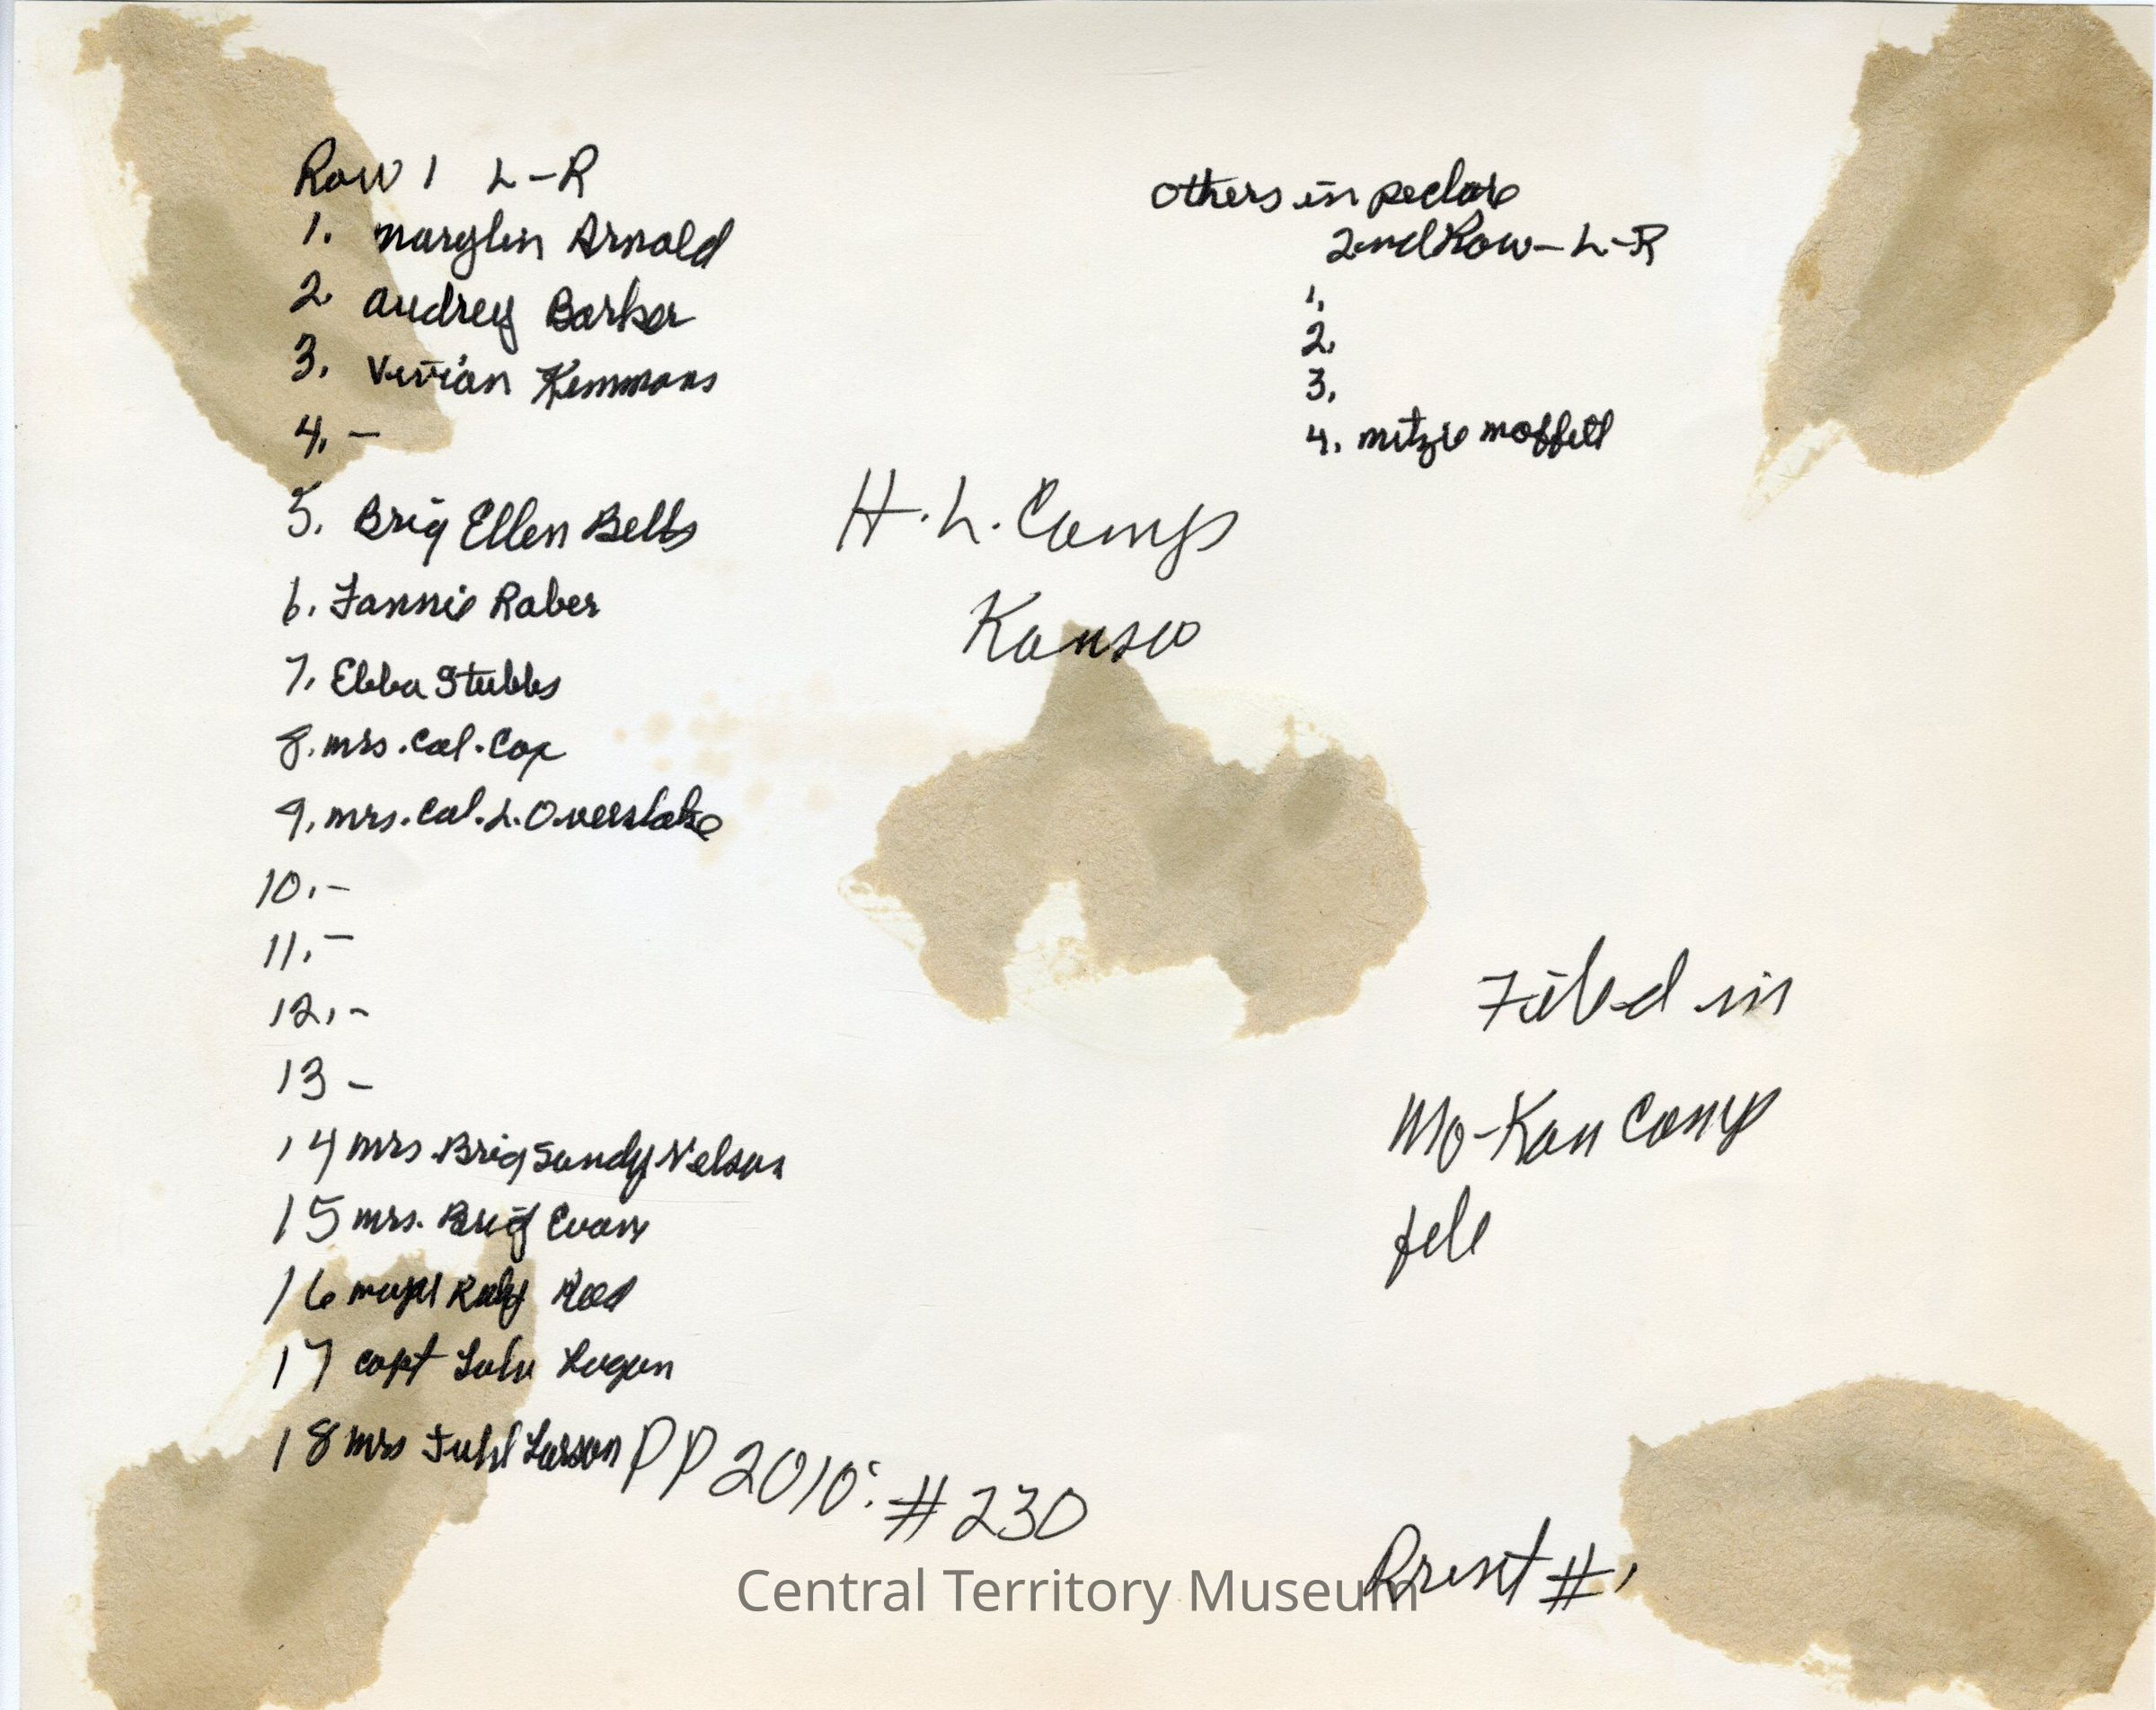 Row 1 L-R
1. Marylin Arnold
2. Audrey Barker
3. Vivian Kemmons
4. -
5. Brig Ellen Betts
6. Fannie Raber
7. Ebba Stubbs
8. mrs. Col. Cox
9. mrs. Col. L. Overstake
10. -
11. -
12. -
13 -
14 mrs Brig Sandy Nelson
15 mrs. Brig Evans
16 major Ruby
17 Capt Lulu Logan
18 mrs Juhl Larson
Others in picture
2nd Row - L-R
1.
2.
3.
4. mitzie moffett
H. L. Camp
Kansas
Filed in
Mo-Kan Camp
file
PP 2010: #230
Print #
Central Territory Museum